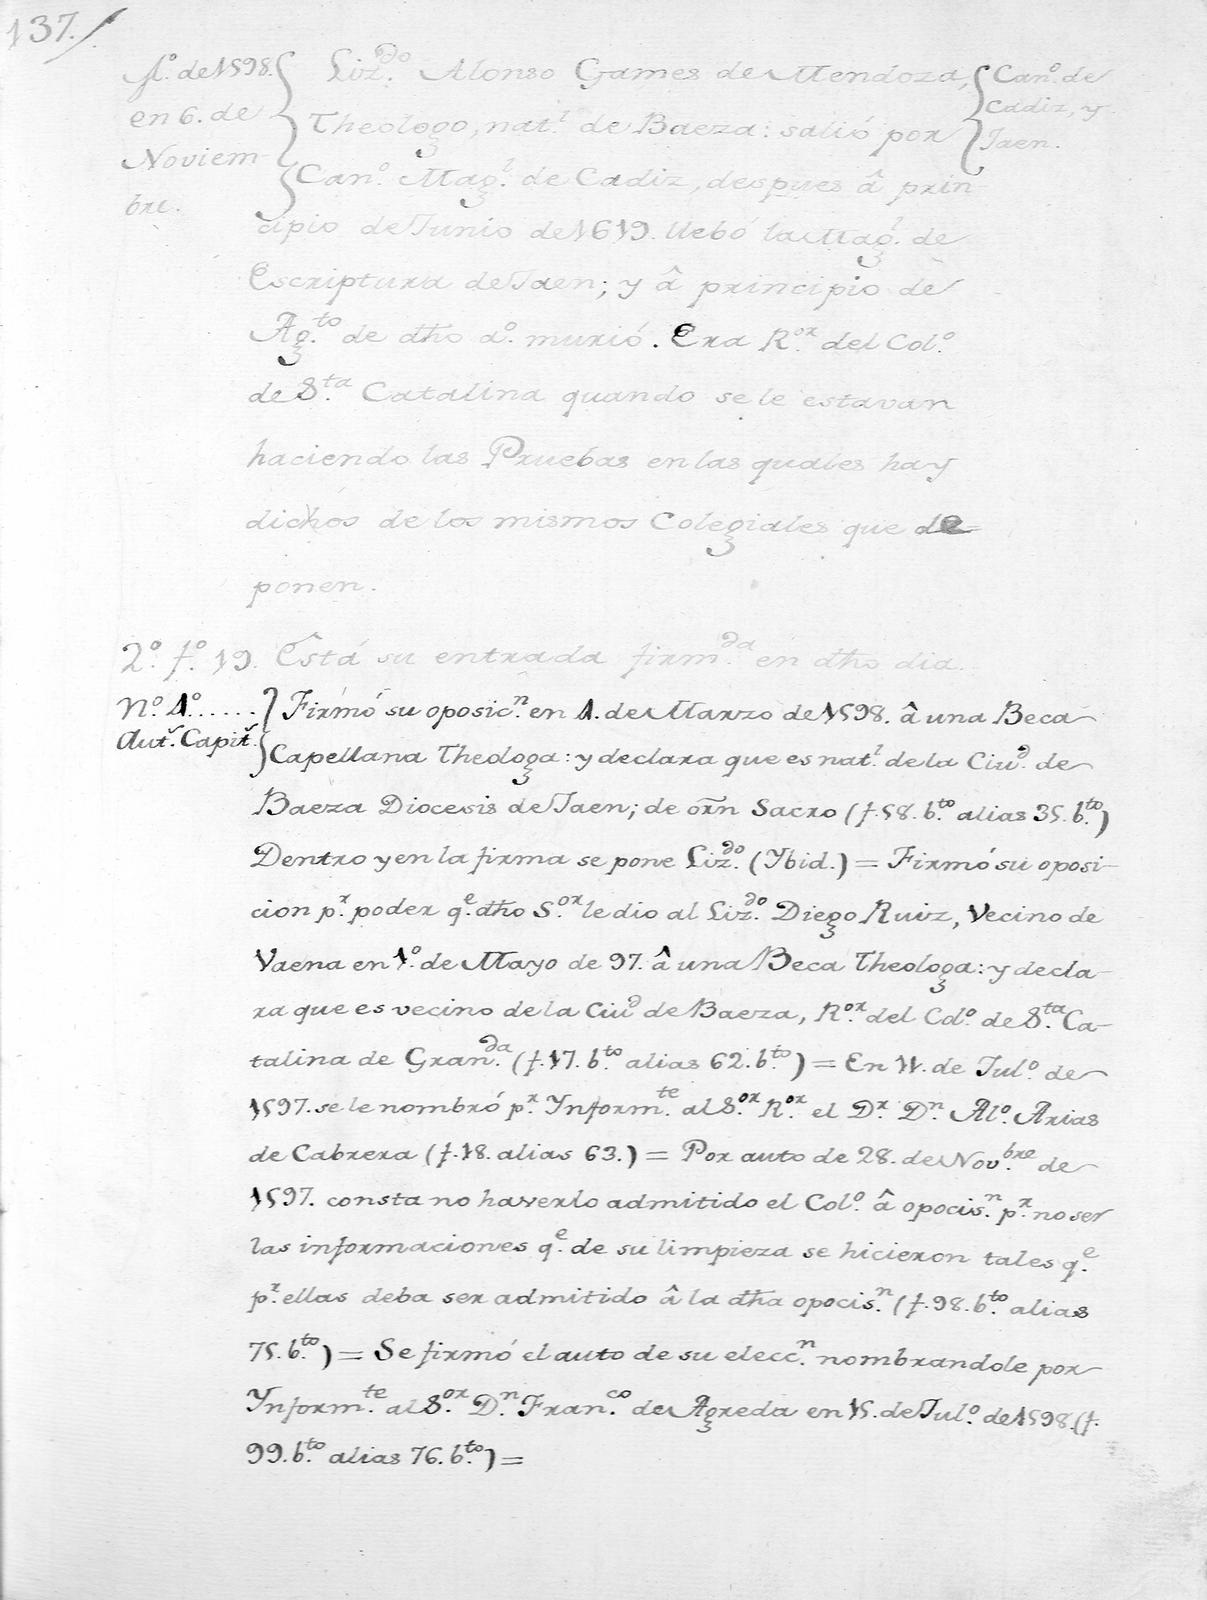 137./
A.º de 1598. en 6. de Noviem- bre.
Liz.do Alonso Games de Mendoza,
Theologo, nat.l de Baeza: salió por
Can.º de Cadiz, y Jaen.
Can.º Mag.l de Cadiz, despues â prin-
cipio de Junio de 1619. llebó la Mag.l de
Escriptura de Jaen; y â principio de
Ag.to de dho a.º murió. Era R.or del Col.º
de S.ta Catalina quando se le estavan
haciendo las Pruebas en las quales hay
dichos de los mismos Colegiales que de=
ponen.
2.º f.º 19. Está su entrada firm.da en dho dia.
N.º 4.º..... Aut.s Capit.s
Firmó su oposic.n en 4. de Marzo de 1598. â una Beca
Capellana Theologa: y declara que es nat.l de la Ciu.d de
Baeza Diocesis de Jaen; de orn Sacro (f. 58. b.to alias 35. b.to)
Dentro y en la firma se pone Liz.do (Ybid.) = Firmó su oposi-
cion p.r poder q.e dho S.or le dio al Liz.do Diego Ruiz, Vecino de
Vaena en 1.º de Mayo de 97. â una Beca Theologa: y decla-
ra que es vecino de la Ciu.d de Baeza, R.or del Col.º de S.ta Ca-
talina de Gran.da (f. 17. b.to alias 62. b.to) = En 11. de Jul.º de
1597. se le nombró p.r Ynform.te al S.or R.or el D.r D.n Al.º Arias
de Cabrera (f. 18. alias 63.) = Por auto de 28. de Nov.bre de
1597. consta no haverlo admitido el Col.º â opocis.n p.r no ser
las informaciones q.e de su limpieza se hicieron tales q.e
p.r ellas deba ser admitido â la dha opocis.n (f. 98. b.to alias
75. b.to) = Se firmó el auto de su elecc.n nombrandole por
Ynform.te al S.or D.n Fran.co de Agreda en 15. de Jul.º de 1598. (f.
99. b.to alias 76. b.to) =